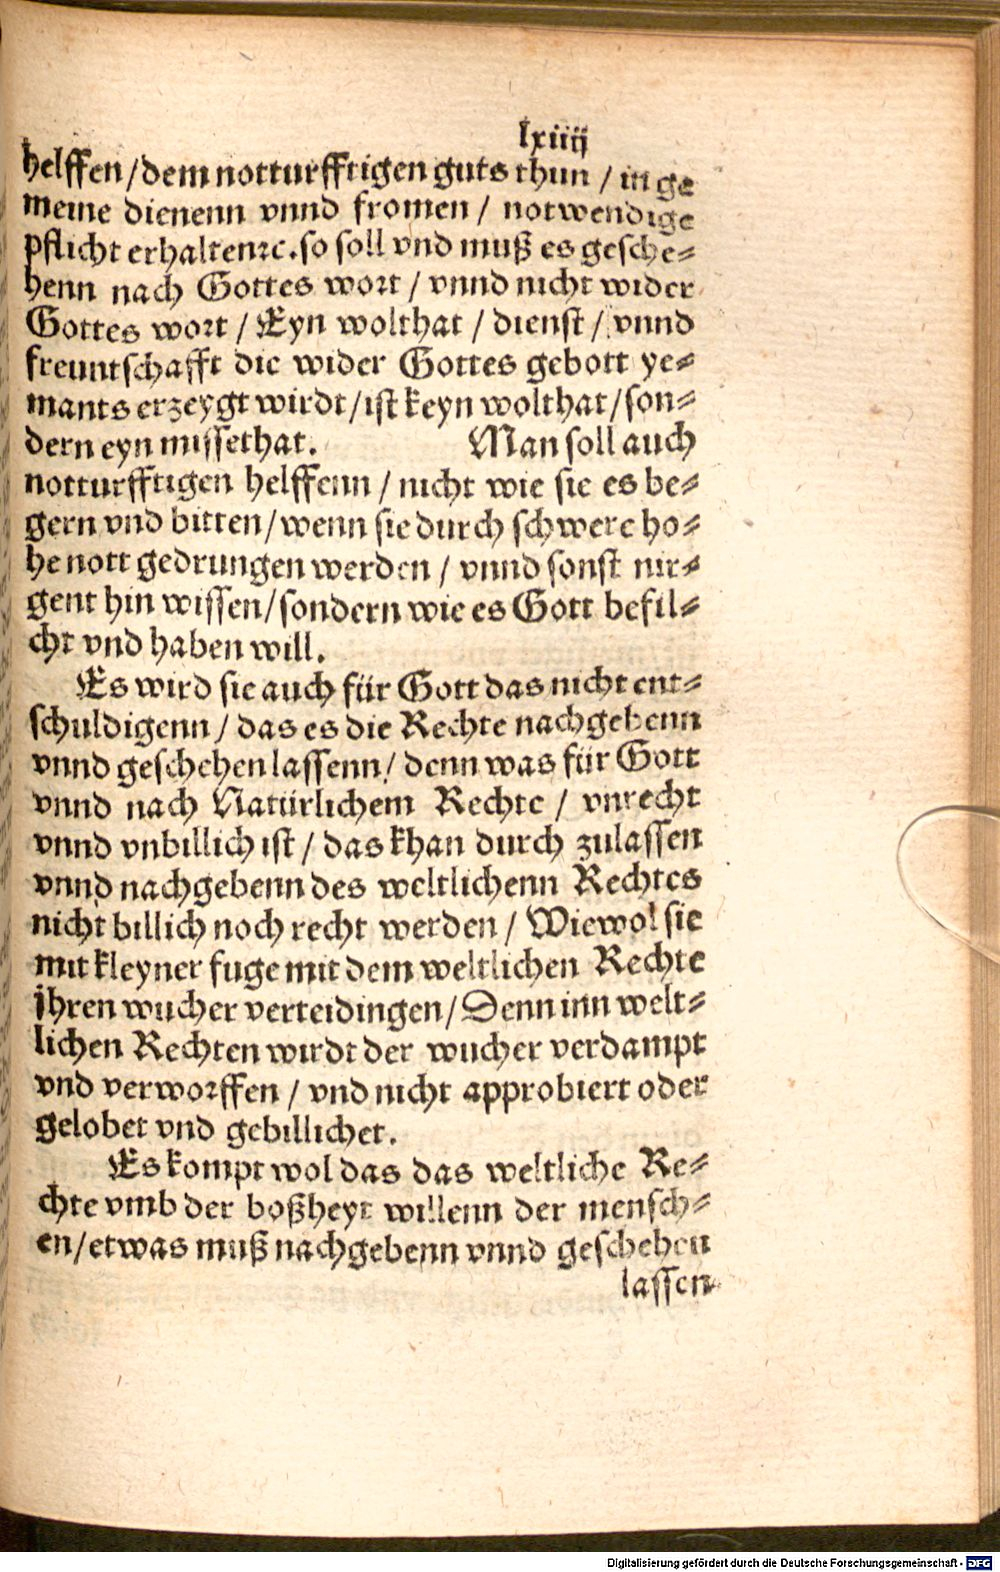 lxiiij
helffen / dem notturfftigen guts thun / in ge
meine dienenn vnnd fromen / notwendige
pflicht erhalten ꝛc. so soll vnd muß es gesche⸗
henn nach Gottes wort / vnnd nicht wider
Gottes wort / Eyn wolthat / dienst / vnnd
freuntschafft die wider Gottes gebott ye⸗
mants erzeygt wirdt / ist keyn wolthat / son⸗
dern eyn missethat. Man soll auch
notturfftigen helffenn / nicht wie sie es be⸗
gern vnd bitten / wenn sie durch schwere ho⸗
he nott gedrungen werden / vnnd sonst nir⸗
gent hin wissen / sondern wie es Gott befil⸗
cht vnd haben will.
Es wird sie auch für Gott das nicht ent⸗
schuldigenn / das es die Rechte nachgebenn
vnnd geschehen lassenn / denn was für Gott
vnnd nach Natürlichem Rechte / vnrecht
vnnd vnbillich ist / das khan durch zulassen
vnnd nachgebenn des weltlichenn Rechtes
nicht billich noch recht werden / Wiewol sie
mit kleyner fuge mit dem weltlichen Rechte
jhren wucher verteidingen / Denn inn welt⸗
lichen Rechten wirdt der wucher verdampt
vnd verworffen / vnd nicht approbiert oder
gelobet vnd gebillichet.
Es kompt wol das das weltliche Re⸗
chte vmb der boßheyt willenn der mensch⸗
en / etwas muß nachgebenn vnnd geschehen
lassen
Digitalisierung gefördert durch die Deutsche Forschungsgemeinschaft - DFG